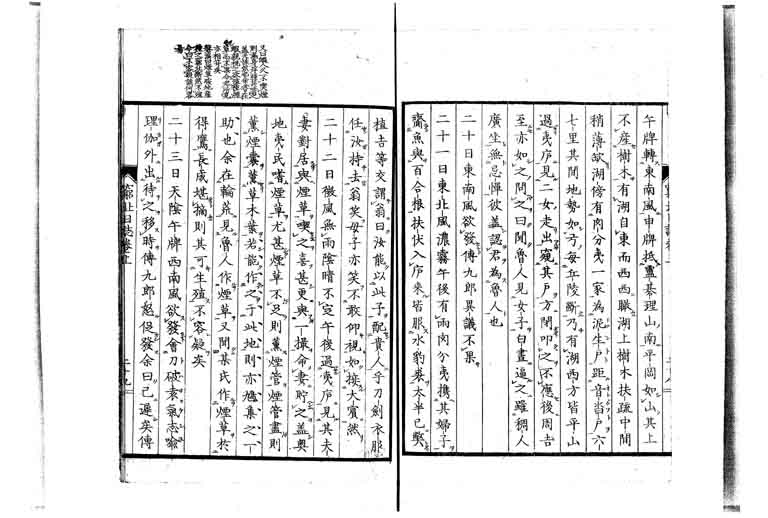 午牌轉東南風申牌抵靈基理山南平岡如山其上
不産樹木有湖自東而西西職湖上樹木扶疏中間
稍薄湖傍有肉分夷一家為泥生戸距音沓戸六
七里其間地勢如才毎丘陵斷乃有湖西方皆平山
過夷戸見二女走出窺其戸方閉叩之不應後周吉
至亦如之問之曰聞魯人見女子白晝逼之雖稠人
廣坐無忌憚彼盖認君為魯人也
二十日東南風欲發傳九郎異議不果
二十一日東北風濃霧午後有雨肉分夷携其婦子
齎魚與百合根扶伏入戸來皆服水豹裘太半已獘
植吉等交謂翁曰汝能以此子配貴人乎刀劍衣服
任汝持去翁笑母子亦笑不敢仰視如挨大賓然
二十二日微風無雨陰晴不定午後過夷戸見其夫
妻對居與煙草喫之喜甚更與一撮命妻貯之盖奥
地夷民嗜煙草尤甚煙草不足則薫煙管煙管盡則
薫煙嚢薫草木葉若能作之于此地則亦撫集之一
助也余在輪荒見魯人作煙草又聞某氏作煙草於
得鷹長成堪摘則其可生殖不容疑矣
二十三日天陰午牌西南風欲發會刀破袁氣志喩
理伽外出待之移時傳九郎怒促發余曰已遲矣傳
二十九